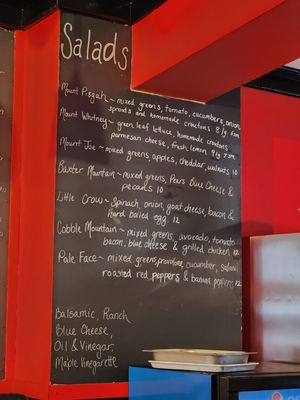 Salads
Mount Pisgah ~ mixed greens, tomato, cucumbers, onion,
sprouts and homemade croutons 8/g 5sm
Mount Whitney ~ green leaf lettuce, homemade croutons
parmesan cheese, fresh lemon 9/g 7sm
Mount Joe ~ mixed greens, apples, cheddar, walnuts 10
Baxter Mountain ~ mixed greens, Pears Blue Cheese &
pecans 10
Little Crow ~ Spinach, onion, goat cheese, bacon &
Hard boiled egg 12
Cobble Mountain ~ mixed greens, avocado, tomato
bacon, blue cheese & grilled chicken 12
Pale Face ~ mixed greens, provolone, cucumber, salami
roasted red peppers & banana peppers 12
Balsamic, Ranch
Blue Cheese,
Oil & Vinegar,
Maple Vinegarette